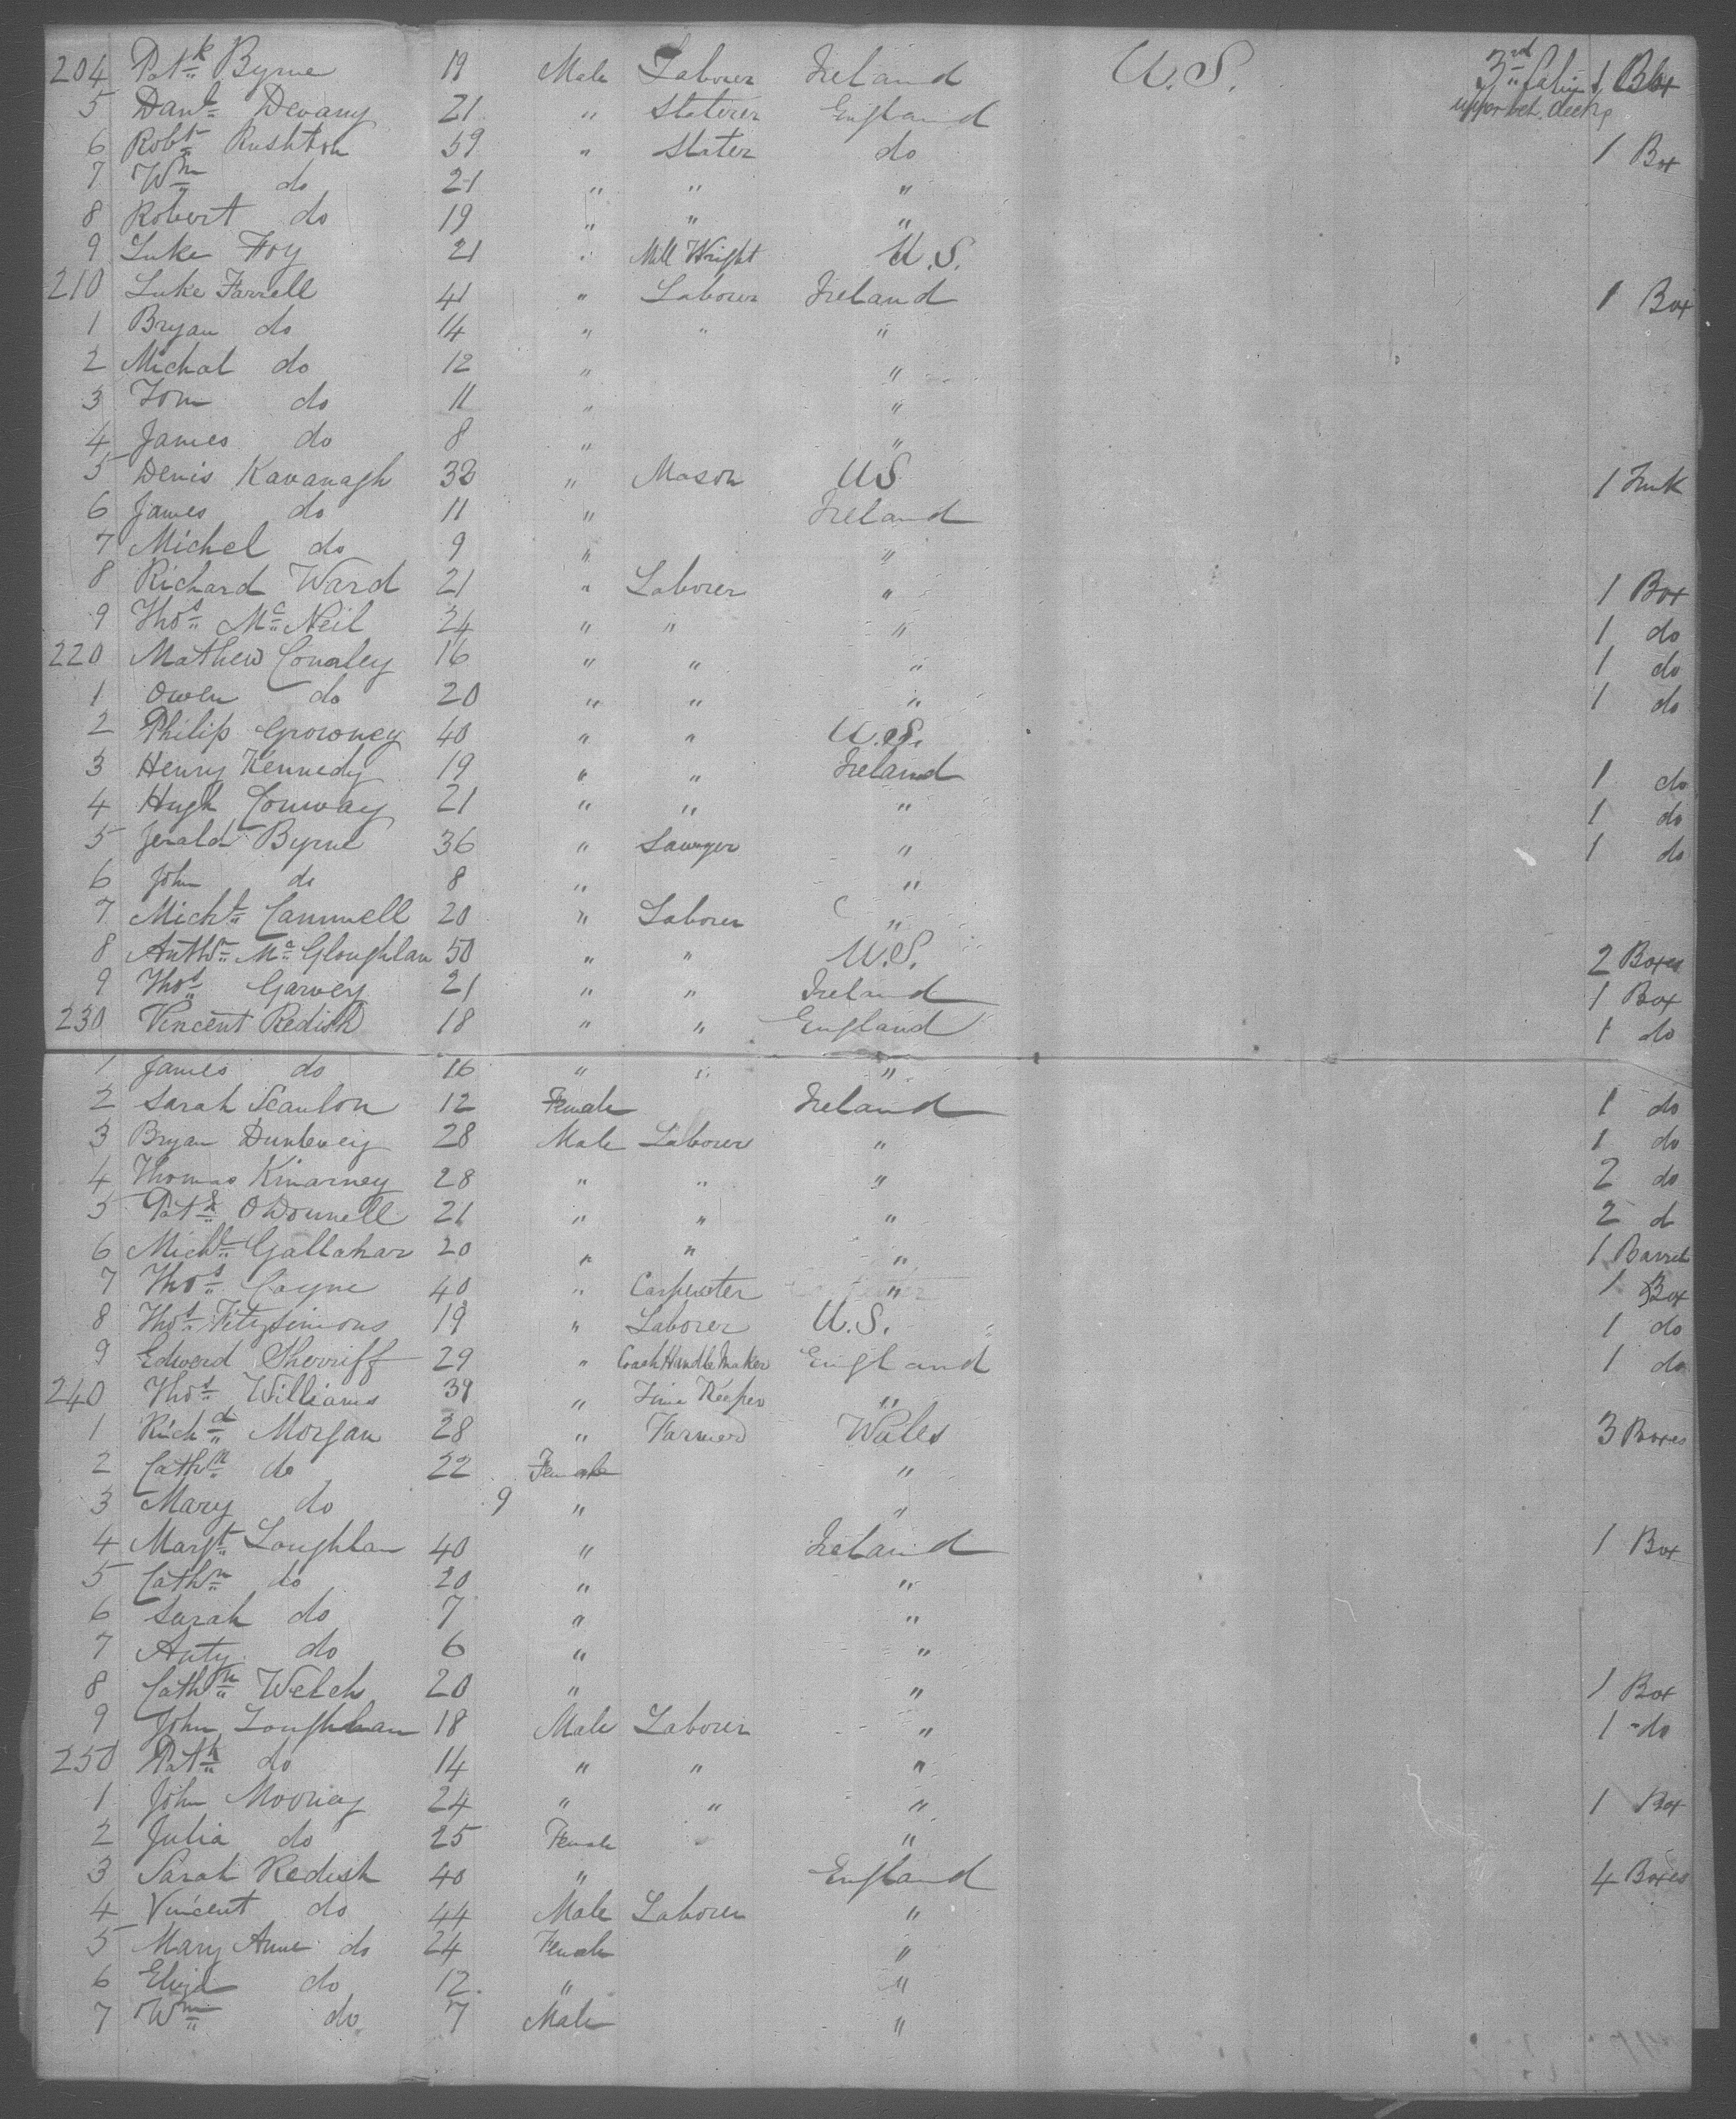 204 Patk Byrne 19 Male Laborer Ireland U.S. 3rd Cabin 1 Box
5 Danl Devany 21 " Slaterer England upper bet. decks
6 Robt Rushton 59 " Slater do 1 Box
7 Wm do 21 " " "
8 Robert do 19 " " "
9 Luke Foy 21 " Mill Wright U.S.
210 Luke Farrell 41 " Laborer Ireland 1 Box
1 Bryan do 14 " " "
2 Michal do 12 " "
3 Tom do 11 " "
4 James do 8 " "
5 Denis Kavanagh 38 " Mason US 1 Trunk
6 James do 11 " Ireland
7 Michel do 9 " "
8 Richard Ward 21 " Laborer " 1 Box
9 Thos McNeil 24 " " " 1 do
220 Mathew Conaley 16 " " " 1 do
1 Owen do 20 " " " 1 do
2 Philip Growney 40 " " U.S.
3 Henry Kennedy 19 " " Ireland 1 do
4 Hugh Conway 21 " " " 1 do
5 Jerald Byrne 36 " Sawyer " 1 do
6 John do 8 " "
7 Michl Cammell 20 " Laborer "
8 Anthy McGloughlan 50 " " U.S. 2 Boxes
9 Thos Garvey 21 " " Ireland 1 Box
230 Vincent Redish 18 " " England 1 do
1 James do 16 " " "
2 Sarah Scanlon 12 Female Ireland 1 do
3 Bryan Dunlevey 28 Male Laborer " 1 do
4 Thomas Kinarney 28 " " " 2 do
5 Patk ODonnell 21 " " " 2 d
6 Michl Gallahar 20 " " " 1 Barrel
7 Thos Coyne 40 " Carpenter " 1 Box
8 Thos Fitzsimons 19 " Laborer U.S. 1 do
9 Edword Sherriff 29 " Coach Handle Maker England 1 do
240 Thos Williams 39 " Time Keeper "
1 Richd Morgan 28 " Farmer Wales 3 Boxes
2 Cathn do 22 Female "
3 Mary do 9 " "
4 Margt Loughlan 40 " Ireland 1 Box
5 Cathn do 20 " "
6 Sarah do 7 " "
7 Anty do 6 " "
8 Cathn Welch 20 " " 1 Box
9 John Loughlan 18 Male Laborer " 1 do
250 Patk do 14 " " "
1 John Mooney 24 " " " 1 Box
2 Julia do 25 Female "
3 Sarah Redish 40 " England 4 Boxes
4 Vincent do 44 Male Laborer "
5 Mary Anne do 24 Female "
6 Eliza do 12 " "
7 Wm do 7 Male "